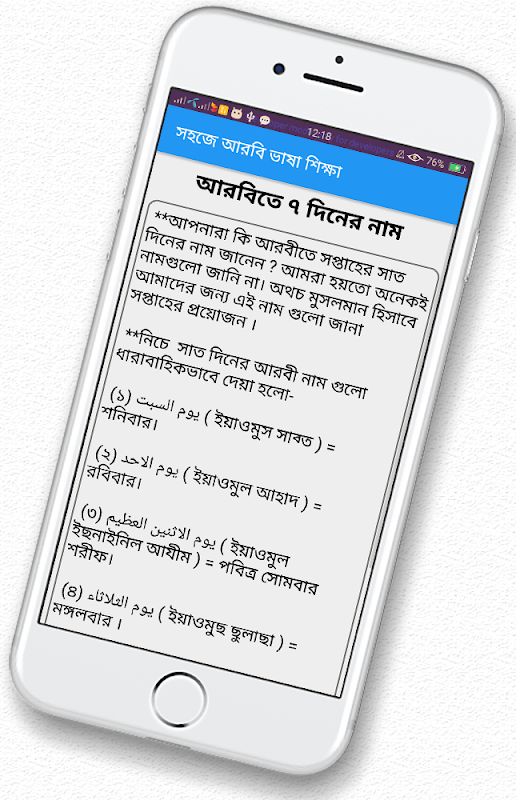 12:18
76%
সহজে আরবি ভাষা শিক্ষা
আরবিতে ৭ দিনের নাম
**আপনারা কি আরবীতে সপ্তাহের সাত
দিনের নাম জানেন ? আমরা হয়তো অনেকই
নামগুলো জানি না। অথচ মুসলমান হিসাবে
আমাদের জন্য এই নাম গুলো জানা
সপ্তাহের প্রয়োজন ।
**নিচে সাত দিনের আরবী নাম গুলো
ধারাবাহিকভাবে দেয়া হলো-
(১) يوم السبت ( ইয়াওমুস সাব্ত ) =
শনিবার।
(২) يوم الاحد ( ইয়াওমুল আহাদ ) =
রবিবার।
(৩) يوم الاثنين العظيم ( ইয়াওমুল
ইছনাইনিল আযীম ) = পবিত্র সোমবার
শরীফ।
(৪) يوم الثلاثاء ( ইয়াওমুছ ছুলাছা ) =
মঙ্গলবার ।